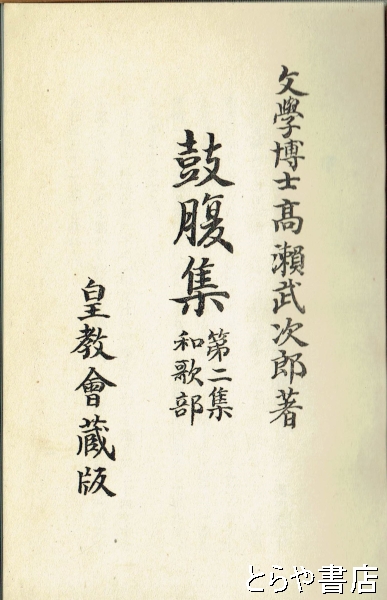 文學博士高瀨武次郎著
鼓腹集
第二集
和歌部
皇教會蔵版
とらや書店